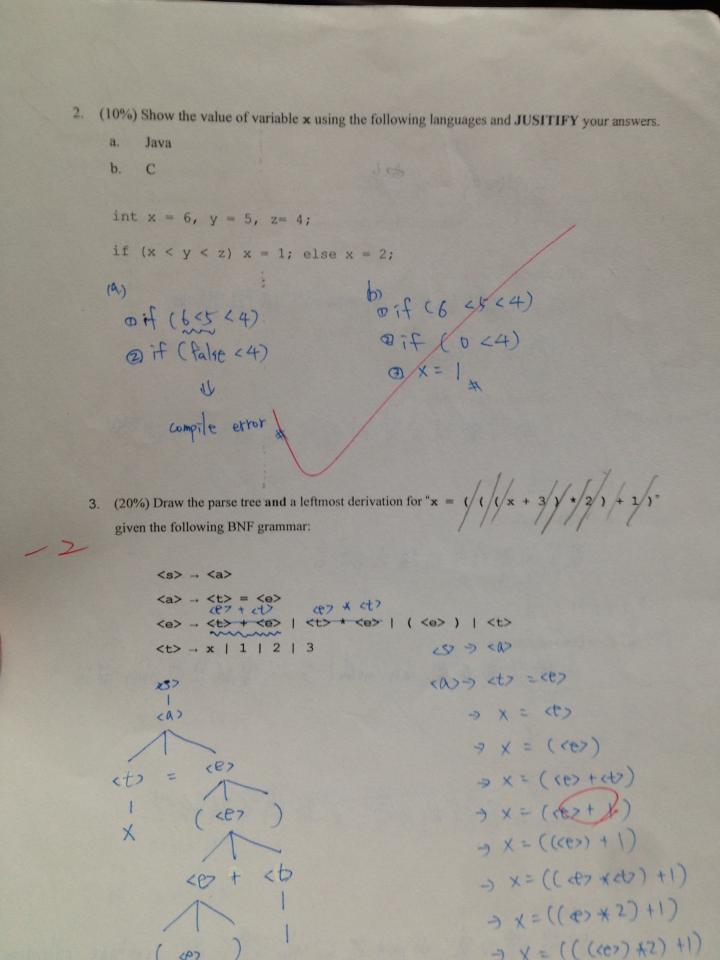 2. (10%) Show the value of variable x using the following languages and JUSITIFY your answers.
a. Java
b. C
int x = 6, y = 5, z= 4;
if (x < y < z) x = 1; else x = 2;
(a)
① if (6<5 <4)
② if (false <4)
⇓
compile error #
b)
① if (6 <5 <4)
② if (0 <4)
③ x = 1 #
3. (20%) Draw the parse tree and a leftmost derivation for "x = ( ( ( x + 3 ) * 2 ) + 1 )"
given the following BNF grammar:
-2
<s> → <a>
<a> → <t> = <e>
<e> + <t> <e> * <t>
<e> → <t> + <e> | <t> * <e> | ( <e> ) | <t>
<t> → x | 1 | 2 | 3
<s>
<a>
<t> = <e>
x ( <e> )
<e> + <t>
1
( <e> )
<s> → <a>
<a> → <t> = <e>
→ x = <e>
→ x = (<e>)
→ x = (<e>+<t>)
→ x = (<e>+ 1)
→ x = ((<e>) + 1)
→ x = ((<e>*<t>) +1)
→ x = ((<e>*2) +1)
→ x = (((<e>)*2) +1)